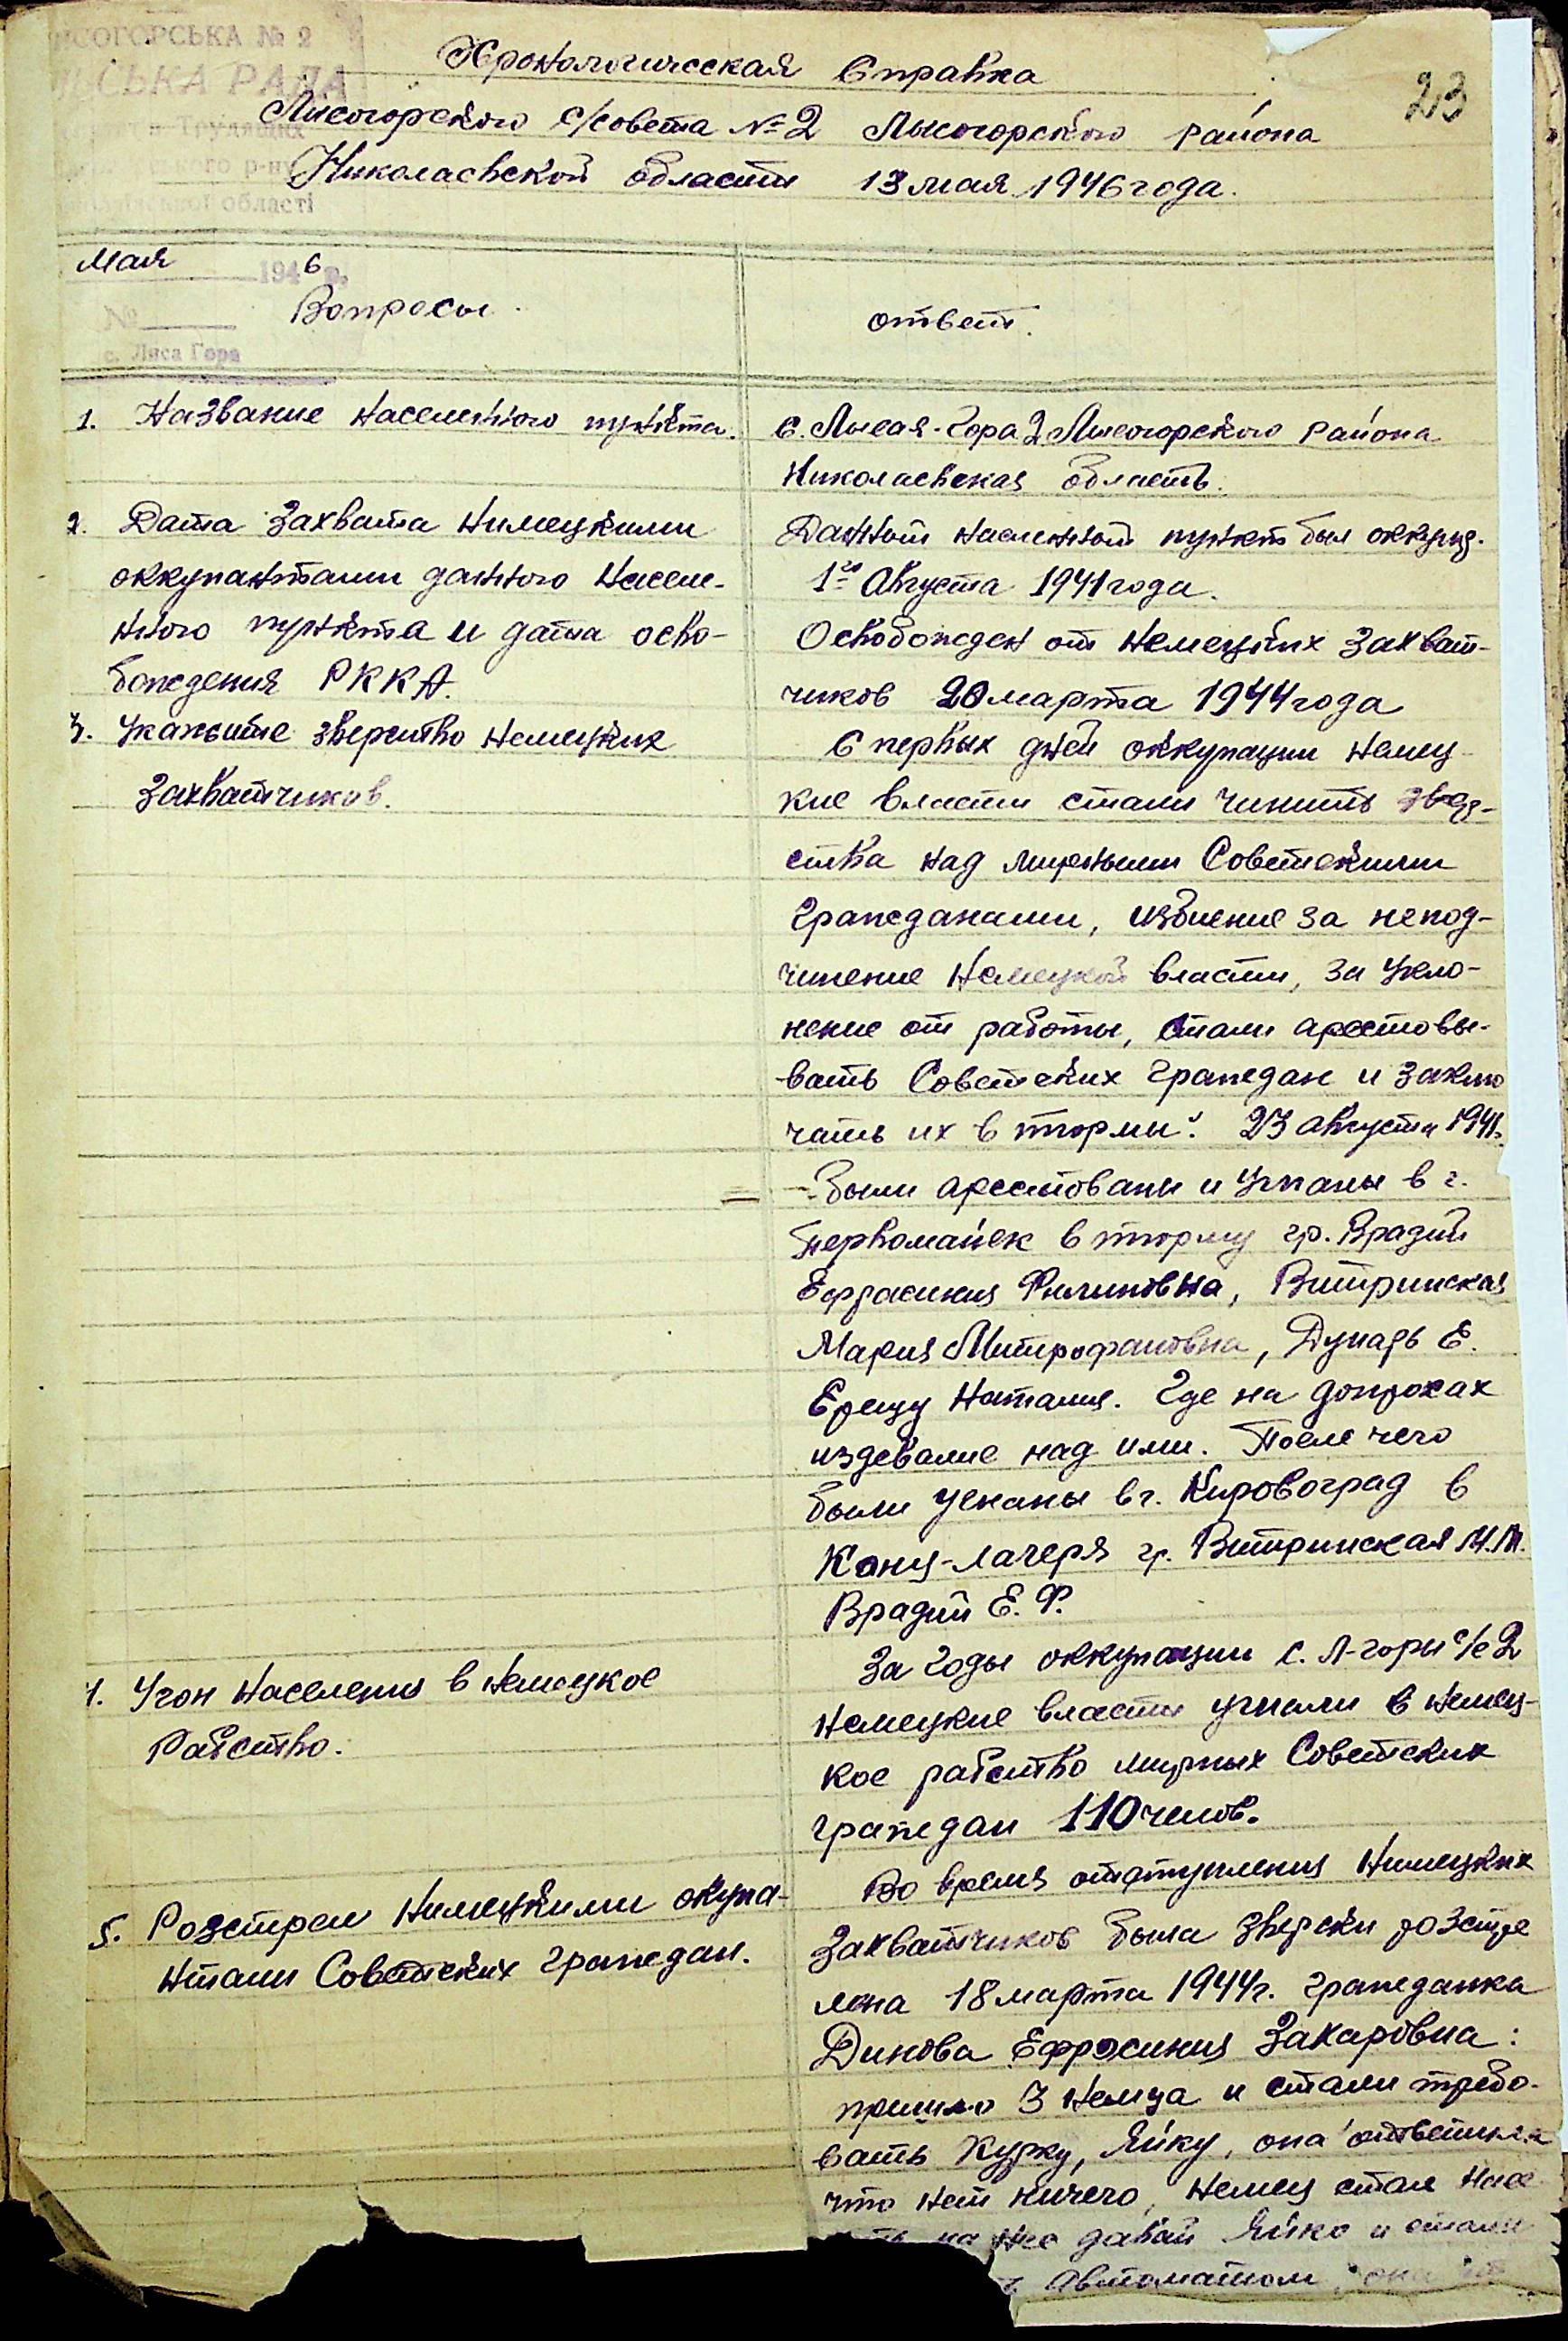 ИСОГОРСЬКА № 2
СЬКА РАДА
Трудящих
ого р-ну
ської області
23
Хронологическая Справка
Лисогорского с/совета № 2 Лысогорского района
Николаевской области 13 мая 1946 года.
Мая 1946 г.
№
с. Лиса Гора
Вопросы.
ответ.
1. Название населенного пункта.
С. Лысая-Гора 2 Лысогорского района
Николаевская область.
2. Дата захвата Нимецкими
оккупантами данного Населе-
нного пункта и дата осво-
бождения РККА.
Данный населенный пункт был оккупир.
1го Августа 1941 года.
Освобожден от Немецких захват-
чиков 20 марта 1944 года
3. Укажыте зверство Немецких
Захватчиков.
С первых дней оккупации немец-
кие власти стали чинить
ства над мирными Советскими
гражданами, избиение за непод-
чинение Немецкой власти, за укло-
нение от работы, стали арестовы-
вать Советских граждан и заклю
чать их в тюрмы. 23 августа 1941г.
были арестованы и угнаны в г.
Первомайск в тюрму гр. Врадий
Ефрасиния Филиповна, Витринская
Мария Митрофановна, Дунарь Е.
Ерещу Наталия. Где на допросах
издевалие над ими. После чего
были угнаны в г. Кировоград в
Конц-лагеря гр. Витринская М.М.
Врадий Е.Ф.
4. Угон Населения в Немецкое
Рабство.
За годы оккупации с. Л-горы с/с 2
Немецкие власти угнали в Немец-
кое рабство мирных Советских
граждан 110 челов.
5. Розстрел Нимецкими окупа-
нтами Советских граждан.
Во время отступления Нимецких
Захватчиков была зверски розстре
лена 18 марта 1944 г. гражданка
Динова Ефросиния Захаровна:
пришло 3 Немца и стали требо-
вать Курку, Яйку, она ответила
что нет ничего, Немец стал
на нее давай Яйко и стали
Автоматом, она